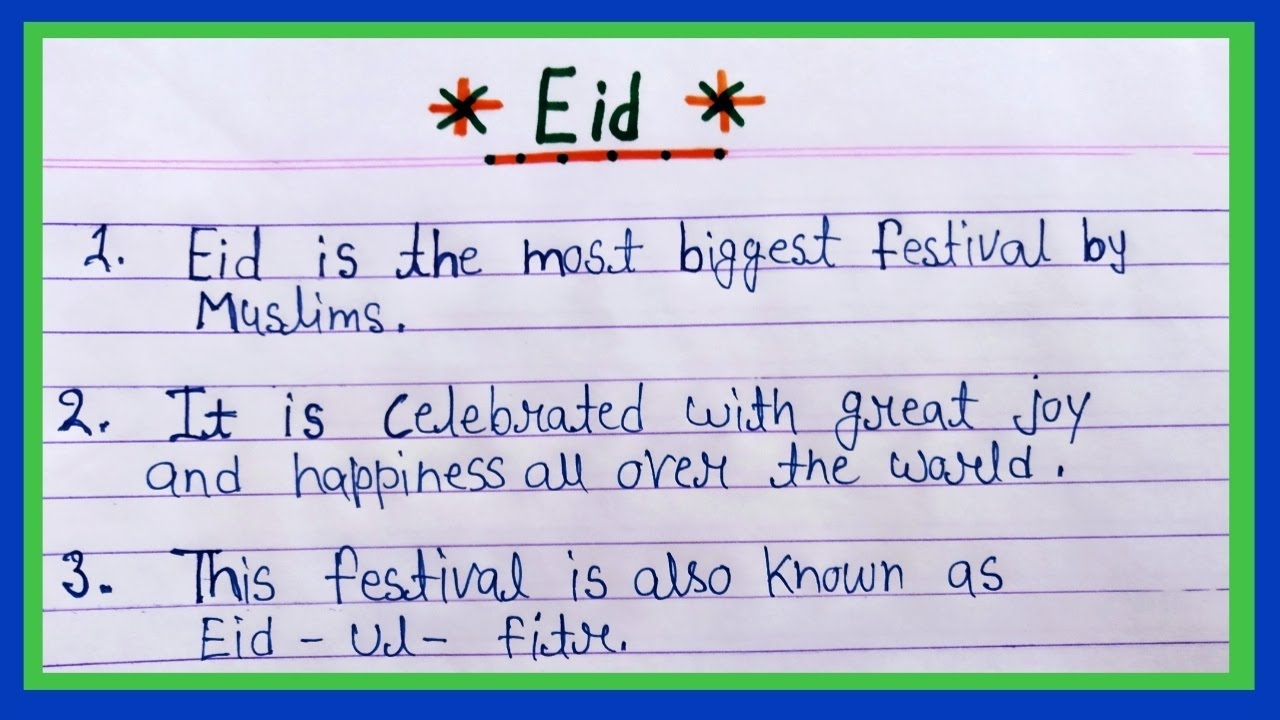 Eid
1. Eid is the most biggest festival by
Muslims.
2. It is Celebrated with great joy
and happiness all over the world.
3. This festival is also known as
Eid - Ul - fitr.